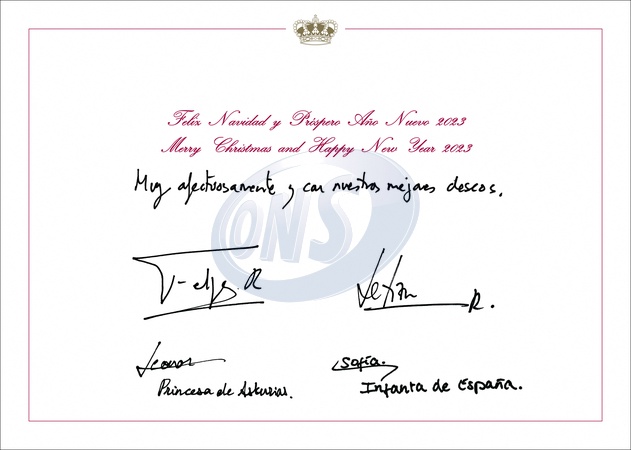 Feliz Navidad y Próspero Año Nuevo 2023
Merry Christmas and Happy New Year 2023
Muy afectuosamente y con nuestros mejores deseos.
ONS
Felipe R
Letizia R.
Leonor Sofía.
Princesa de Asturias. Infanta de España.